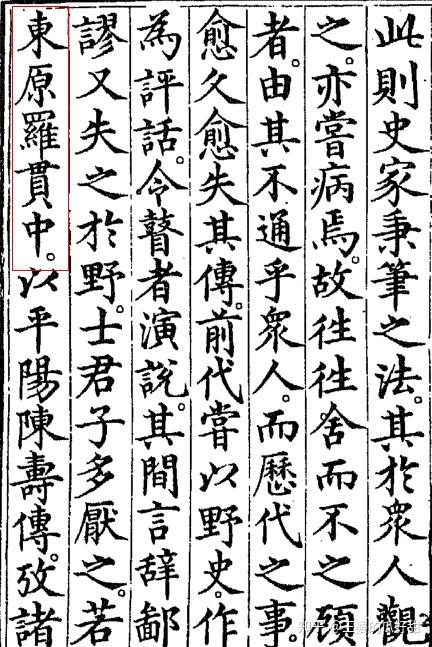 此則史家秉筆之法。其於衆人觀
之。亦嘗病焉。故往往舍而不之顧
者。由其不通乎衆人。而歷代之事。
愈久愈失其傳。前代嘗以野史。作
為評話。令瞽者演說。其間言辞鄙
謬。又失之於野。士君子多厭之。若
東原羅貫中。以平陽陳壽傳。攷諸